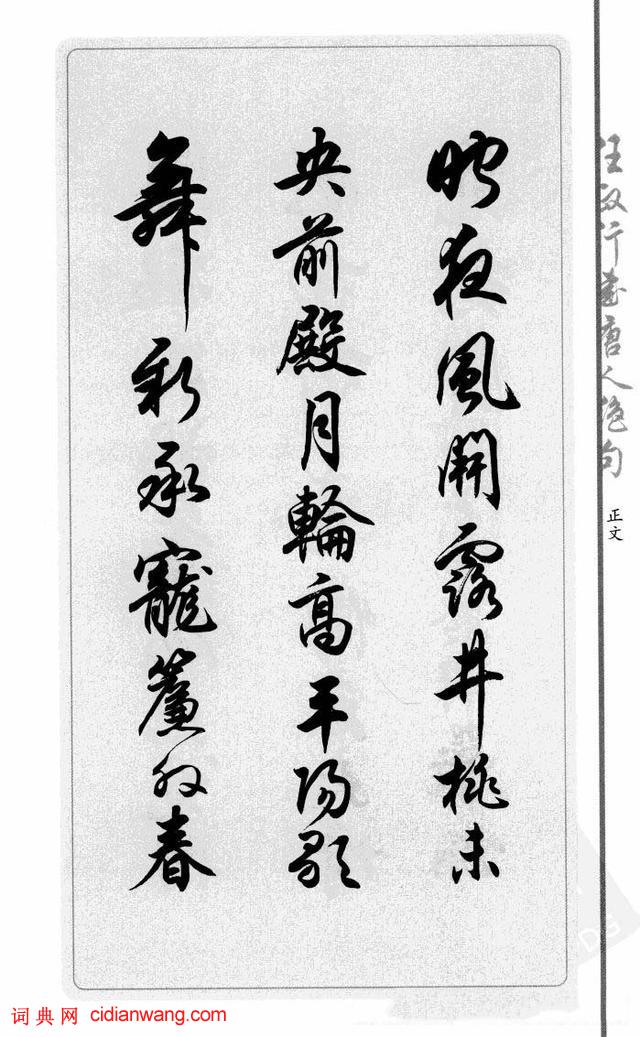 任政行書唐人絕句
正文
昨夜風開露井桃未
央前殿月輪高平陽歌
舞新承寵簾外春
词典网 cidianwang.com